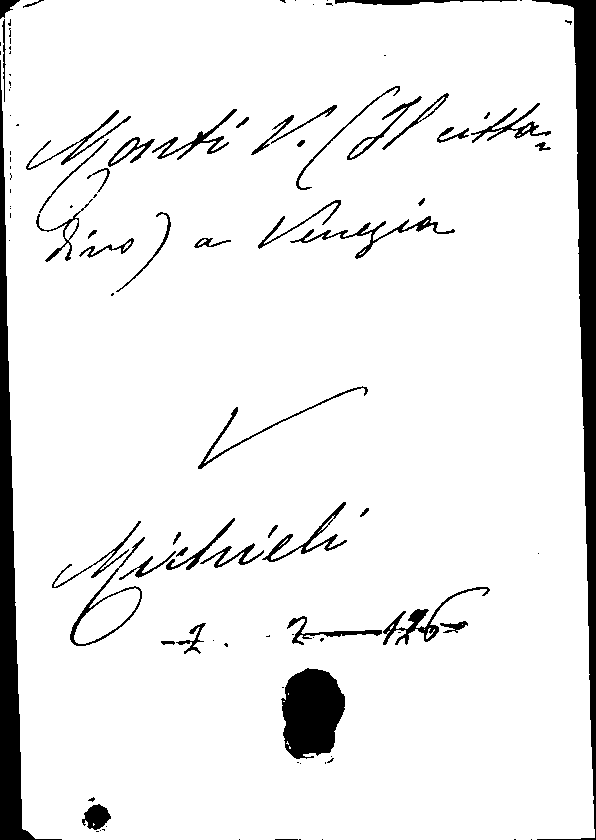 Monti V. (Il citta=
dino) a Venezia
V
Michieli